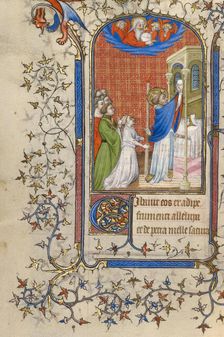 Cibauit eos ex adipe
frumenti alleluya
et de petra melle satura